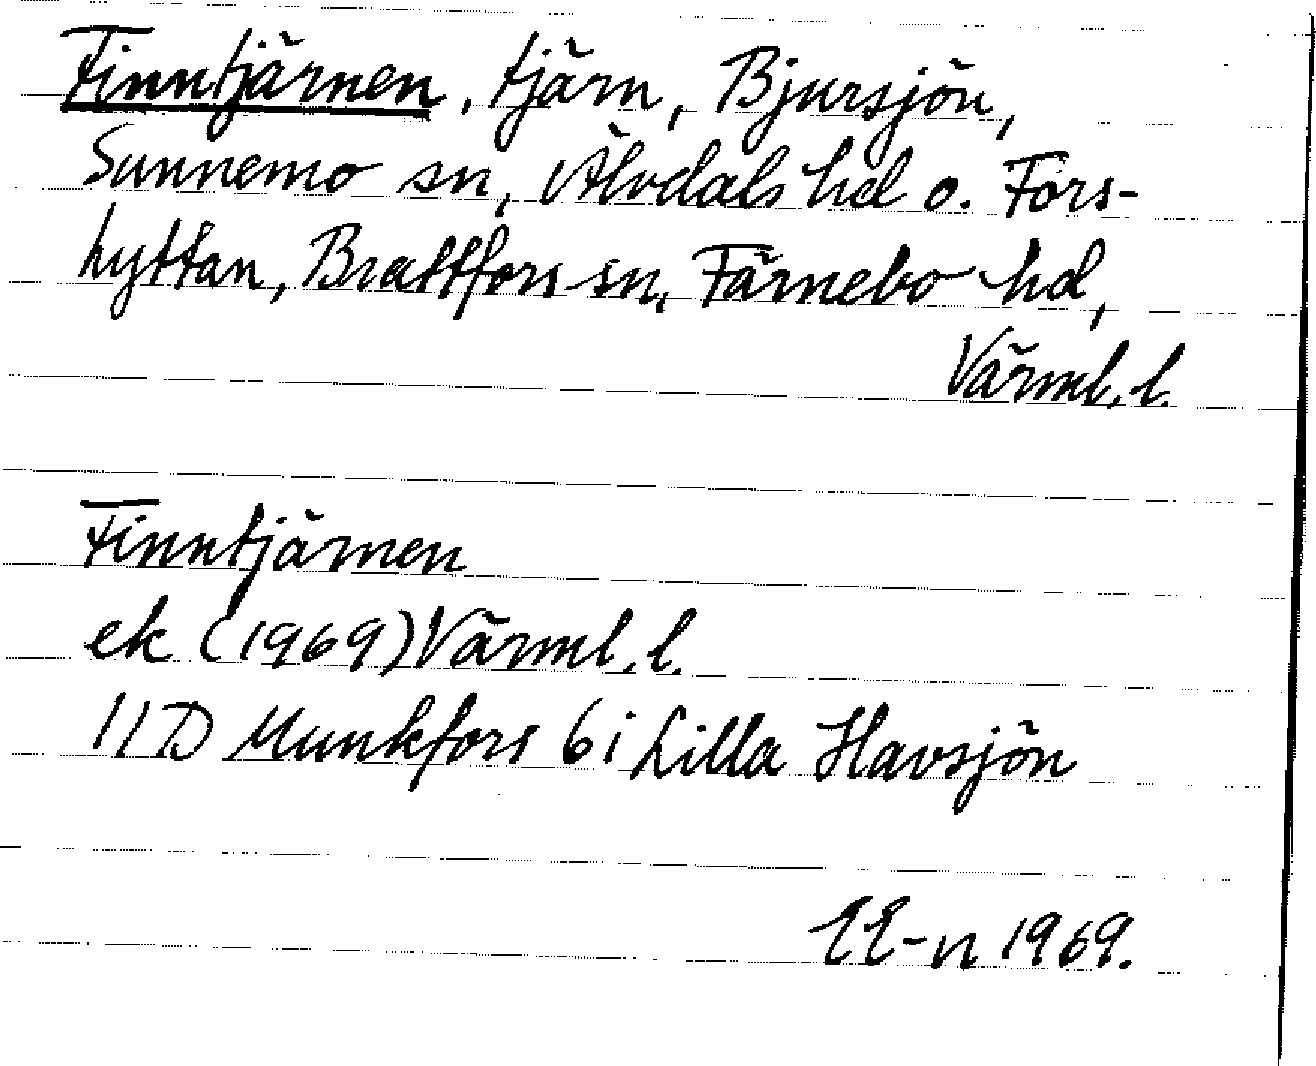 Finntjärnen, tjärn, Bjursjön,
Sunnemo sn, Älvdals hd o. Fors-
hyttan, Brattfors sn, Färnebo hd,
Värml. l.
Finntjärnen
ek (1969) Värml. l.
11D Munkfors 6 i Lilla Havsjön
EE-n 1969.